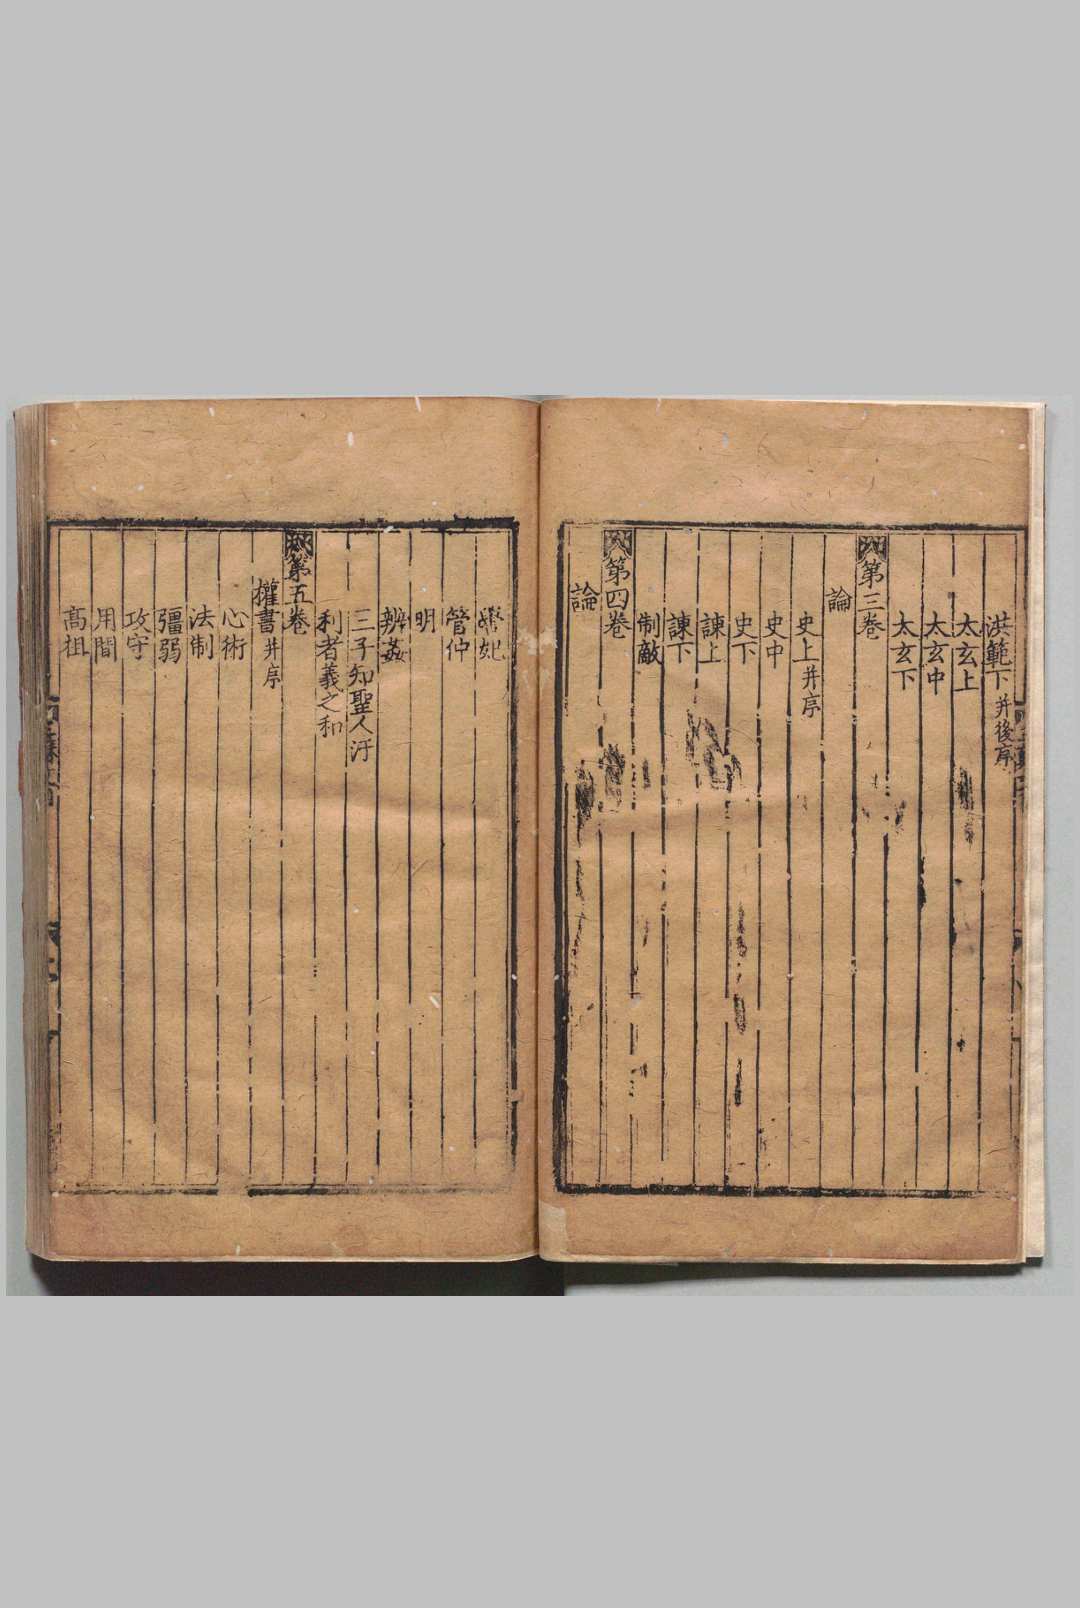 洪範下并後序
太玄上
太玄中
太玄下
第三卷
論
史上并序
史中
史下
諫上
諫下
制敵
第四卷
論
嚳妃
管仲
明
辨姦
三子知聖人汙
利者義之和
第五卷
權書并序
心術
法制
彊弱
攻守
用間
高祖